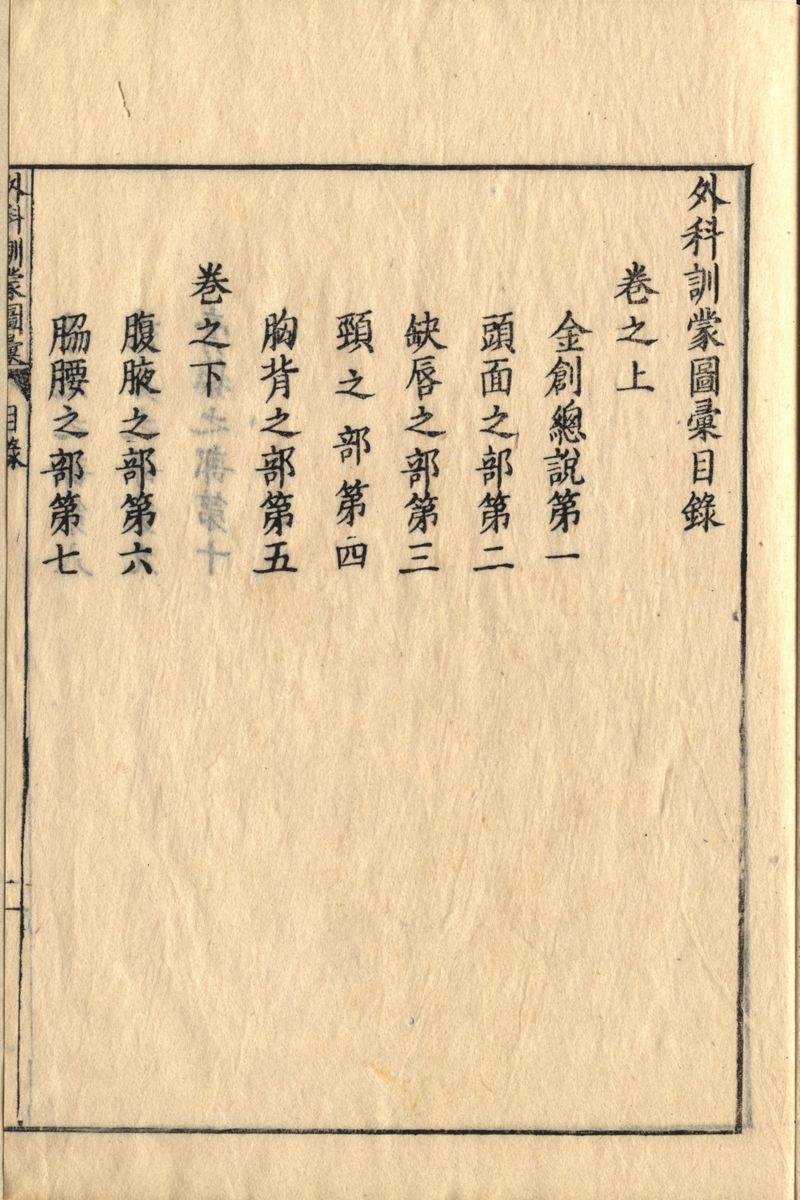 外科訓蒙圖彙目錄
卷之上
金創總說第一
頭面之部第二
缺唇之部第三
頸之部第四
胸背之部第五
卷之下
腹腋之部第六
脇腰之部第七
外科訓蒙圖彙 目錄 一